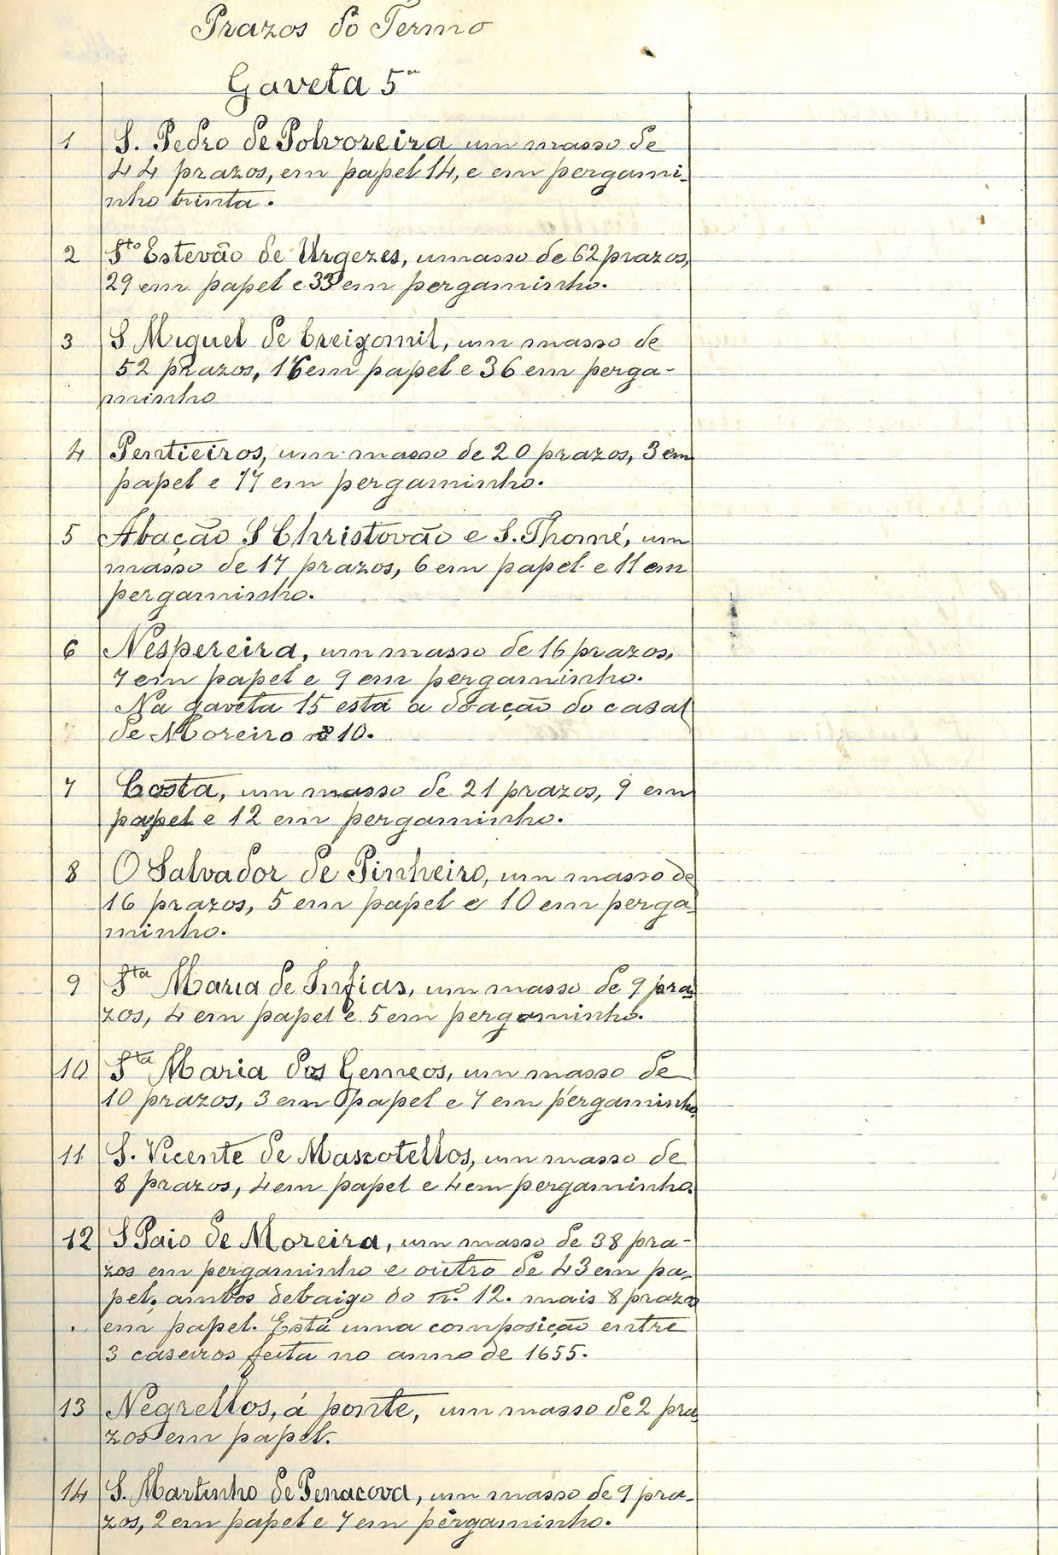 Prazos do Termo
Gaveta 5ª
1 S. Pedro de Polvoreira um masso de
44 prazos, em papel 14, e em pergami-
nho trinta.
2 Sto Estevão de Urgezes, umasso de 62 prazos,
29 em papel e 33 em pergaminho.
3 S Miguel de Creixomil, um masso de
52 prazos, 16 em papel e 36 em perga-
minho
4 Pentieiros, um masso de 20 prazos, 3 em
papel e 17 em pergaminho.
5 Abação S Christovão e S. Thomé, um
masso de 17 prazos, 6 em papel e 11 em
pergaminho.
6 Nespereira, um masso de 16 prazos,
7 em papel e 9 em pergaminho.
Na gaveta 15 está a doação do casal
de Moreiro nº 10.
7 Costa, um masso de 21 prazos, 9 em
papel e 12 em pergaminho.
8 O Salvador de Pinheiro, um masso de
16 prazos, 5 em papel e 10 em perga-
minho.
9 Sta Maria de Infias, um masso de 9 pra-
zos, 4 em papel e 5 em pergaminho.
10 Sta Maria dos Gemeos, um masso de
10 prazos, 3 em papel e 7 em pergaminho
11 S. Vicente de Mascotellos, um masso de
8 prazos, 4 em papel e 4 em pergaminho.
12 S Paio de Moreira, um masso de 38 pra-
zos em pergaminho e outro de 43 em pa-
pel, ambos debaixo do nº. 12. mais 8 prazos
em papel. Está uma composição entre
3 caseiros feita no anno de 1655.
13 Negrellos, á ponte, um masso de 2 pra-
zos em papel.
14 S. Martinho de Penacova, um masso de 9 pra-
zos, 2 em papel e 7 em pergaminho.